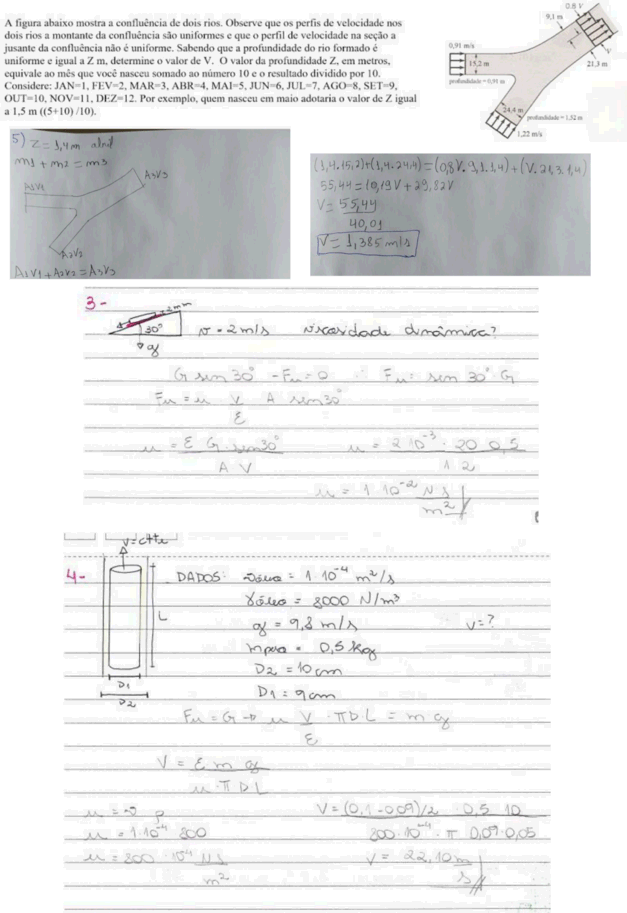 A figura abaixo mostra a confluência de dois rios. Observe que os perfis de velocidade nos
dois rios a montante da confluência são uniformes e que o perfil de velocidade na seção a
jusante da confluência não é uniforme. Sabendo que a profundidade do rio formado é
uniforme e igual a Z m, determine o valor de V. O valor da profundidade Z, em metros,
equivale ao mês que você nasceu somado ao número 10 e o resultado dividido por 10.
Considere: JAN=1, FEV=2, MAR=3, ABR=4, MAI=5, JUN=6, JUL=7, AGO=8, SET=9,
OUT=10, NOV=11, DEZ=12. Por exemplo, quem nasceu em maio adotaria o valor de Z igual
a 1,5 m ((5+10) /10).
0.8 V
9,1 m
V
21,3 m
0,91 m/s
15,2 m
profundidade = 0,91 m
24,4 m
profundidade = 1,52 m
1,22 m/s
5) Z = 1,4m abril
m1 + m2 = m3
A1V1
A3V3
A2V2
A1V1 + A2V2 = A3V3
(1,4.15,2)+(1,4.24,4)=(0,8V.9,1.1,4)+(V.21,3.1,4)
55,44=10,19V+29,82V
V= 55,44
40,01
V= 1,385 m/s
3-
2mm
30°
g
v = 2 m/s viscosidade dinâmica?
G sen 30° - Fu = 0 ∴ Fu = sen 30° G
Fu = u V A sen 30°
ε
u = ε G sen 30° u = 2 10⁻³ . 20 0,5
A V 1 2
u = 1 10⁻² N s
m²
V=ctte
4- DADOS: νóleo = 1·10⁻⁴ m²/s
γóleo = 8000 N/m³
L
g = 9,8 m/s v=?
mpeso = 0,5 kg
D2 = 10cm
D1 D1 = 9cm
D2
Fu = G → u V · π D L = m g
ε
V = ε m g
u · π D L
u = ν ρ V = (0,1-0,09)/2 · 0,5 10
u = 1·10⁻⁴ 800 800·10⁻⁴ · π 0,09·0,05
u = 800 · 10⁻⁴ N s V = 22,10 m
m² s